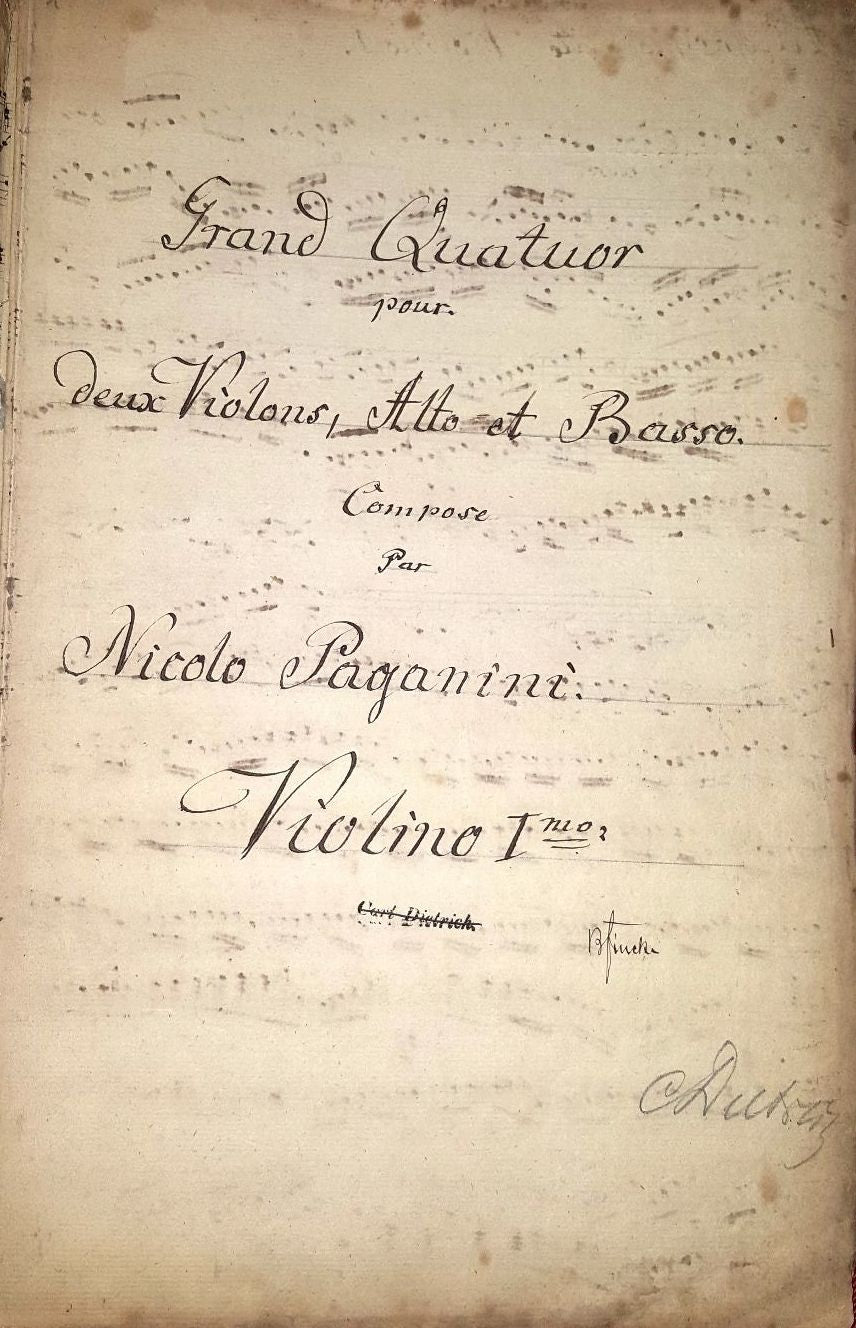 Grand Quatuor
pour.
deux Violons, Alto et Basso.
Compose
Par
Nicolo Paganini.
Violino Imo.
Carl Dietrich.